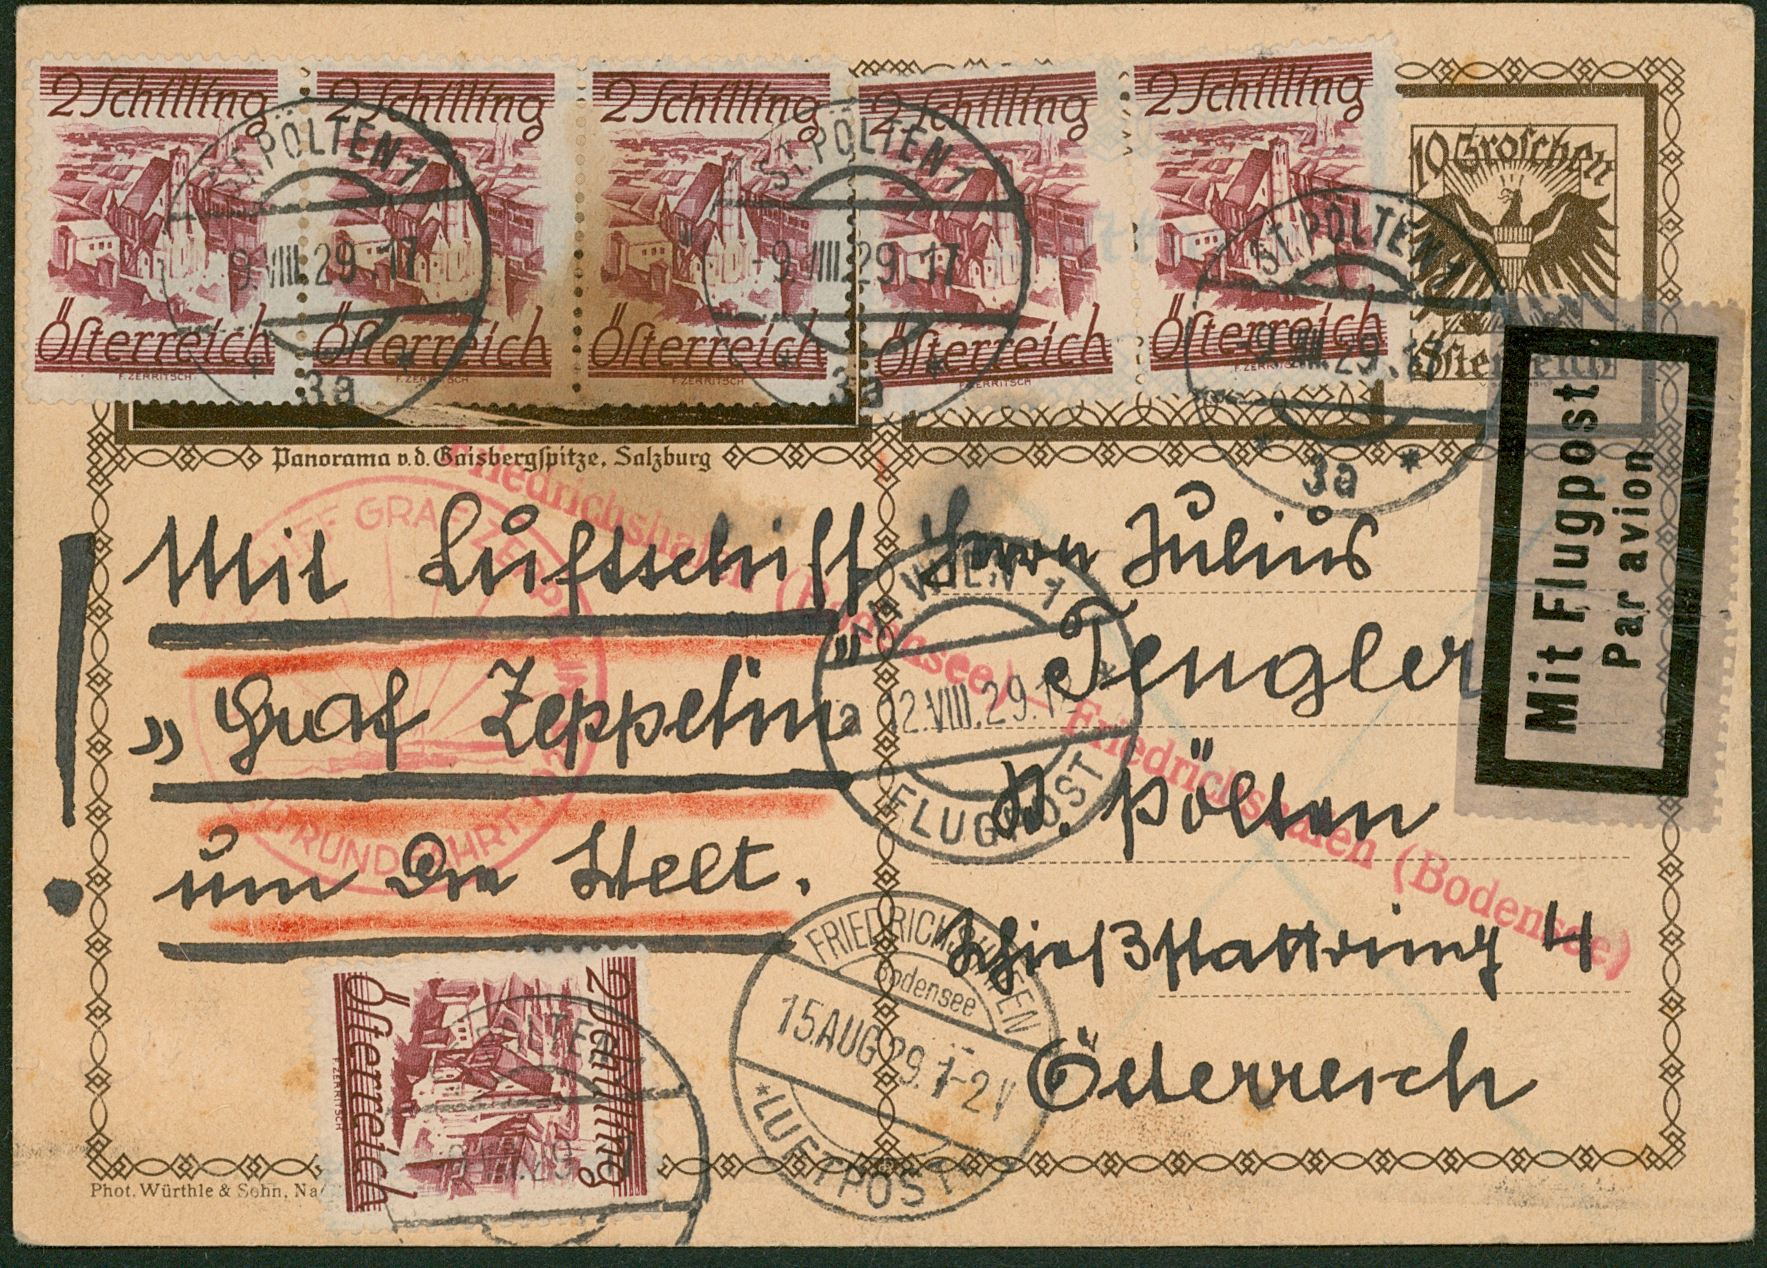 2 Schilling
Österreich
F. ZERRITSCH
2 Schilling
Österreich
F. ZERRITSCH
2 Schilling
Österreich
F. ZERRITSCH
2 Schilling
Österreich
F. ZERRITSCH
2 Schilling
Österreich
10 Groschen
Österreich
ST. PÖLTEN 1
9.VIII.29.17
* 3a *
ST. PÖLTEN 1
-9.VIII.29.17
* 3a *
ST. PÖLTEN 1
-9.VIII.29.17
* 3a *
Mit Flugpost
Par avion
Panorama v.d. Gaisbergspitze, Salzburg
Friedrichshafen (Bodensee) – Friedrichshafen (Bodensee)
LUFTSCHIFF GRAF ZEPPELIN
WELTRUNDFAHRT
Mit Luftschiff
„Graf Zeppelin"
um die Welt.
!
Herrn Julius
Tengler
St. Pölten
Schießstattring 4
Österreich
WIEN 1
12.VIII.29.1
FLUGPOST
FRIEDRICHSHAFEN
Bodensee
15.AUG.29.1-2V
* LUFTPOST
2 Schilling
Österreich
F. ZERRITSCH
PÖLTEN
Phot. Würthle & Sohn, Na